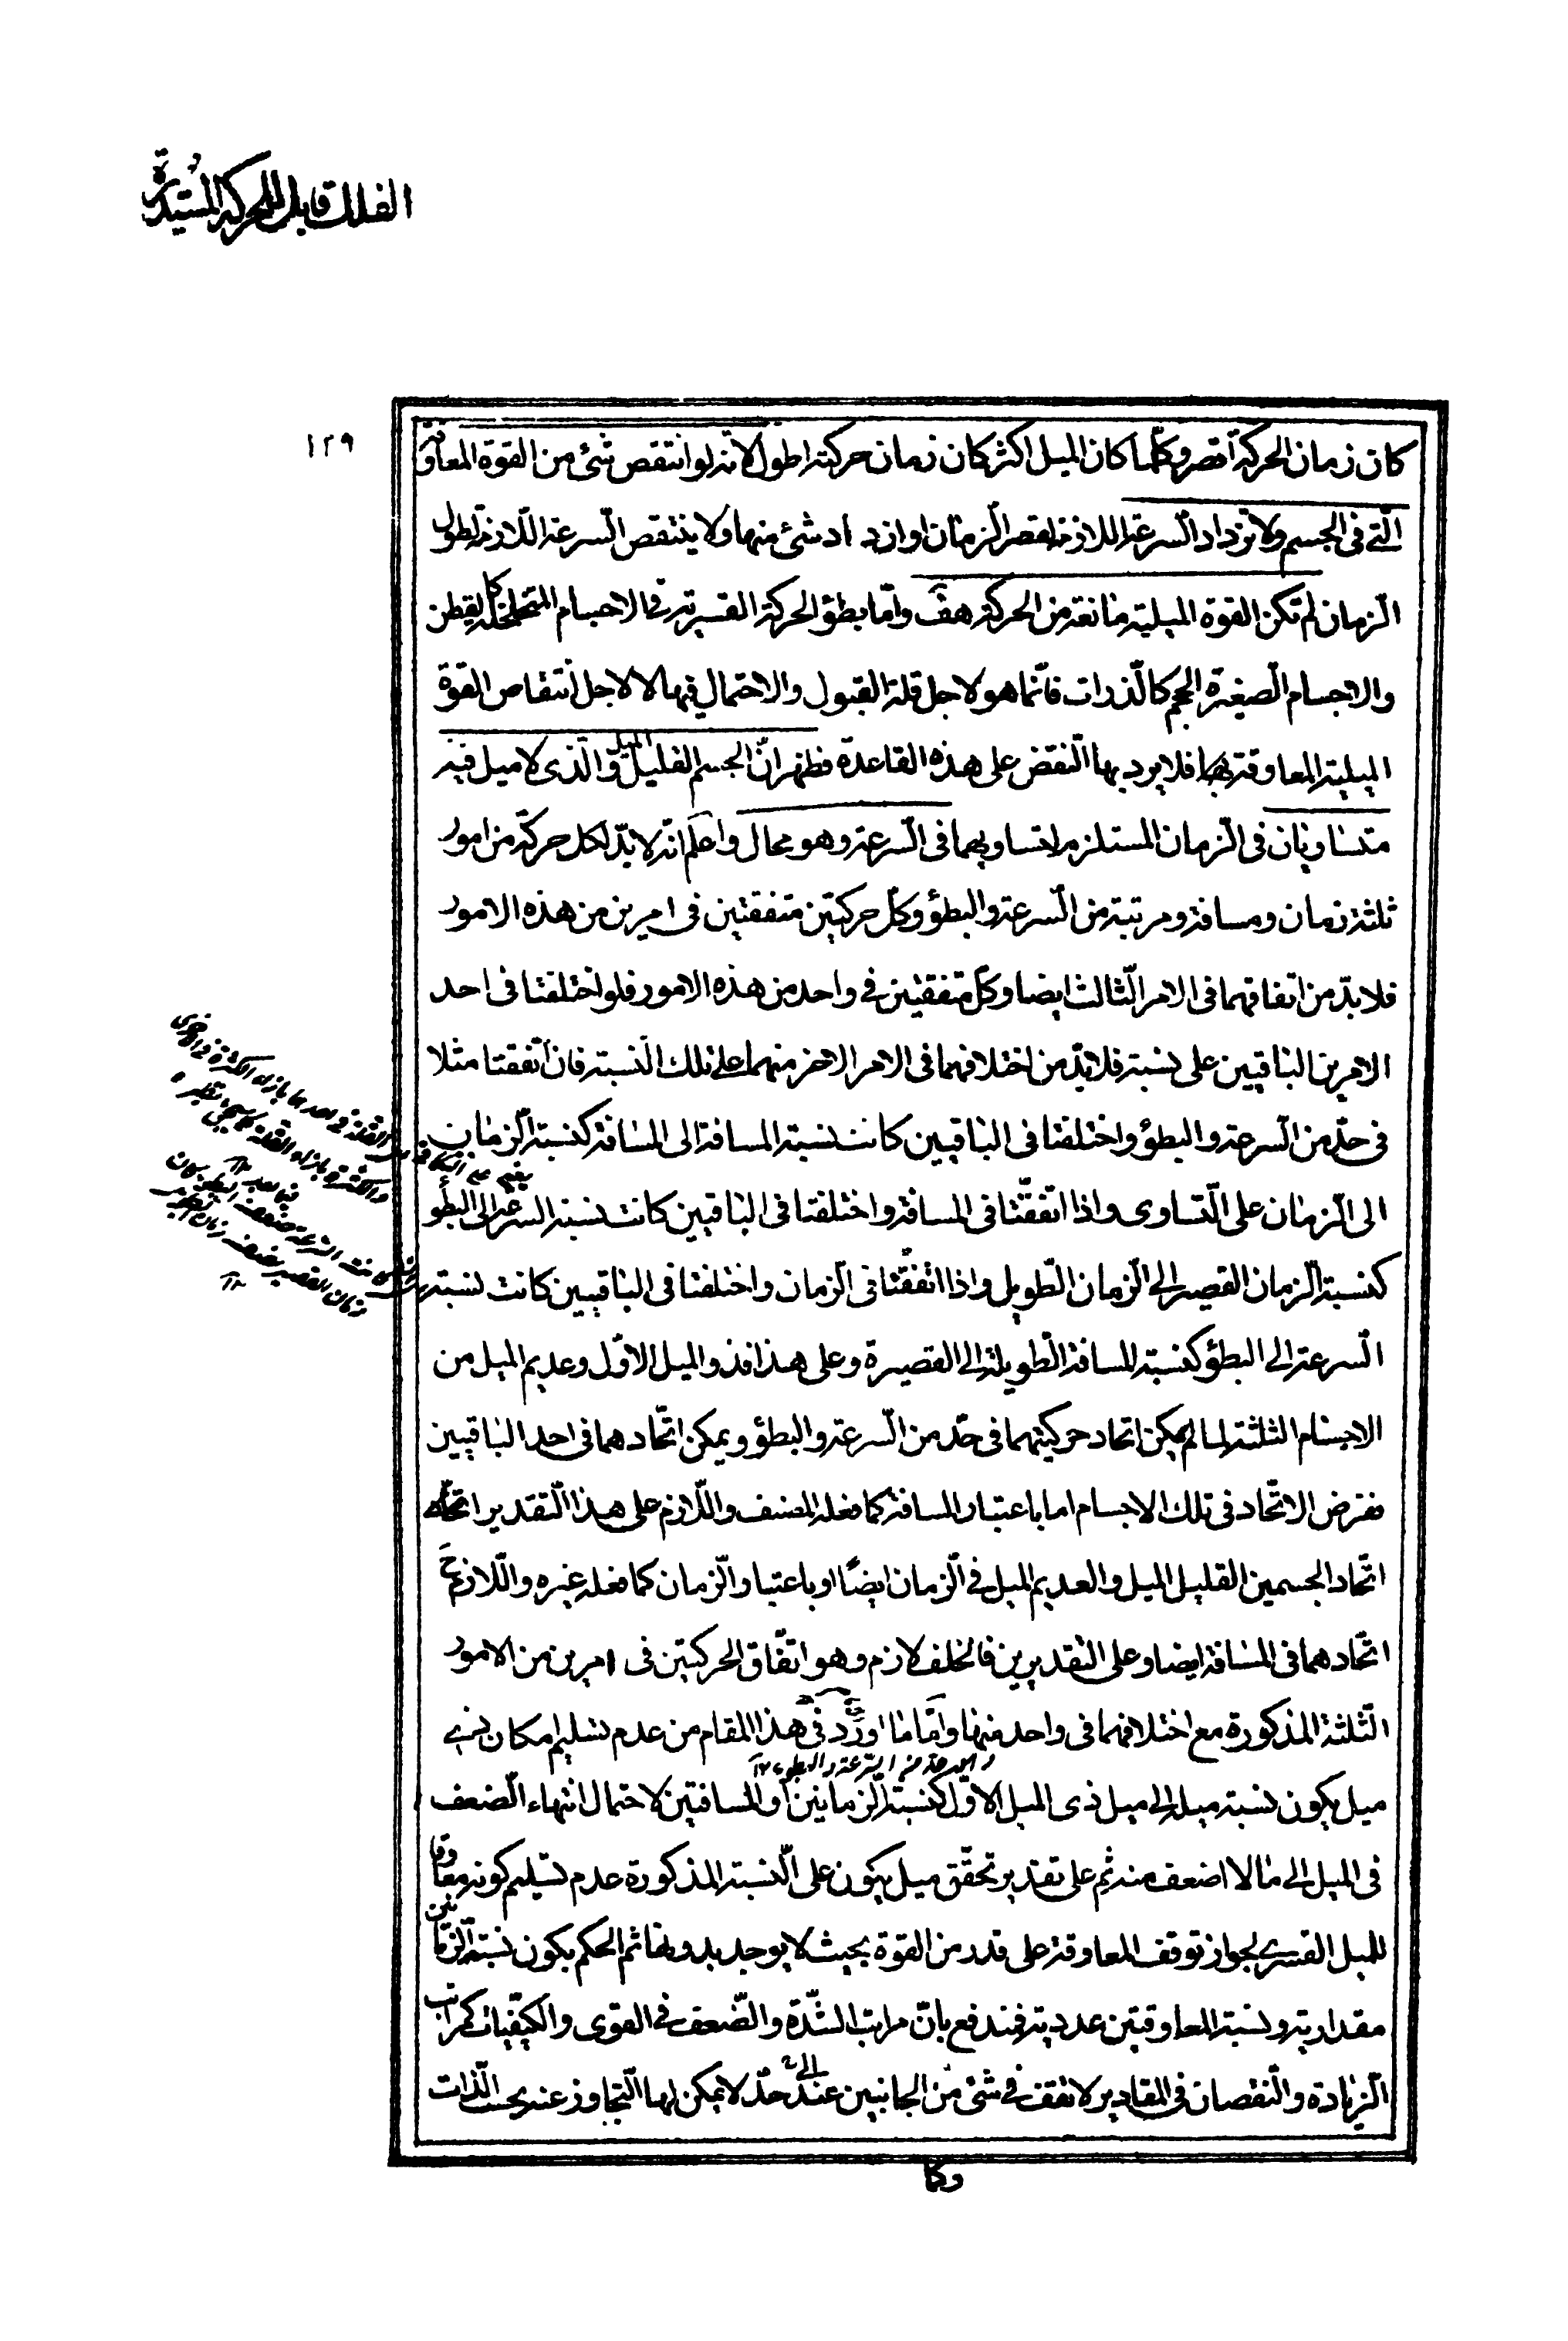 الفلك قابل للحركة المستديرة
١٢٩
كان زمان الحركة اقصر وكلّما كان الميل اكثر كان زمان حركته اطول لانّه لو انتقص شئ من القوة المعاوقة
الّتے فى الجسم ولا تزداد السّرعة اللازمة لقصر الزّمان او ازداد شئ منها ولا ينتقص السّرعة اللّازمة لطول
الزّمان لم تكن القوة الميلية مانعة من الحركة هف وامّا بطؤ الحركة القسرية فى الاجسام المتخلخلة كالقطن
والاجسام الصّغيرة الحجم كالذّرات فانّما هو لاجل قلة القبول والاحتمال فيها لا لاجل انتقاص القوة
الميلية المعاوقة بها فلا يرد بها النّقض على هذه القاعدة فظهر انّ الجسم القليل الميل والّذى لا ميل فيه
متساويان فى الزّمان المستلزم لتساويهما فى السّرعة وهو محال واعلم انّه لا بدّ لكل حركة من امور
ثلثة زمان ومسافة ومرتبة من السّرعة والبطؤ وكلّ حركتين متفقتين فى امرين من هذه الامور
فلا بدّ من اتفاقهما فى الامر الثّالث ايضا وكلّ متفقتين فے واحد من هذه الامور فلو اختلفتا فى احد
الامرين الباقيين على نسبة فلا بدّ من اختلافهما فى الامر الاخر منهما على تلك النّسبة فان اتّفقتا مثلا
فى حدّ من السّرعة والبطؤ واختلفتا فى الباقيين كانت نسبة المسافة الى المسافة كنسبة الزّمان
الى الزّمان على التّساوى واذا اتّفقتا فى المسافة واختلفتا فى الباقيين كانت نسبة السرعة الى البطؤ
كنسبة الزّمان القصير الى الزّمان الطّويل واذا اتفقتا فى الزّمان واختلفتا فى الباقيين كانت نسبة
السّرعة الى البطؤ كنسبة المسافة الطّويلة الى القصيرة وعلى هذا فذو الميل الاوّل وعديم الميل من
الاجسام الثلثة لما لم يمكن اتحاد حركتيهما فى حدّ من السّرعة والبطؤ ويمكن اتّحادهما فى احد الباقيين
نفرض الاتّحاد فى تلك الاجسام اما باعتبار المسافة كما فعله المصنف واللّازم على هذا التّقدير
اتّحاد الجسمين القليل الميل والعديم الميل فے الزّمان ايضًا او باعتبار الزّمان كما فعله غيره واللّازم ح
اتّحادهما فى المسافة ايضا وعلى التقديرين فالخلف لازم وهو اتّفاق الحركتين فى امرين من الامور
الثّلثة المذكورة مع اختلافهما فى واحد منها وامّا ما اورد فى هذا المقام من عدم تسليم امكان
ميل يكون نسبة ميله الى ميل ذى الميل الاوّل كنسبة الزّمانين او المسافتين لاحتمال انتهاء الضّعف
فى الميل الى ما لا اضعف منه ثم على تقدير تحقّق ميل يكون على النّسبة المذكورة عدم تسليم كونه معاوقا
للميل القسرى لجواز توقف المعاوقة على قدر من القوة بحيث لا يوجد بدونها ثم الحكم بكون نسبة الزمانين
مقدارية ونسبة المعاوقتين عددية فمندفع بانّ مراتب الشّدّة والضّعف فى القوى والكيفيّات كمراتب
الزّيادة والنّقصان فى المقادير لا تقف فے شئ من الجانبين عند حدّ لا يمكن لها التّجاوز عنه بحسب الذّات
وكا